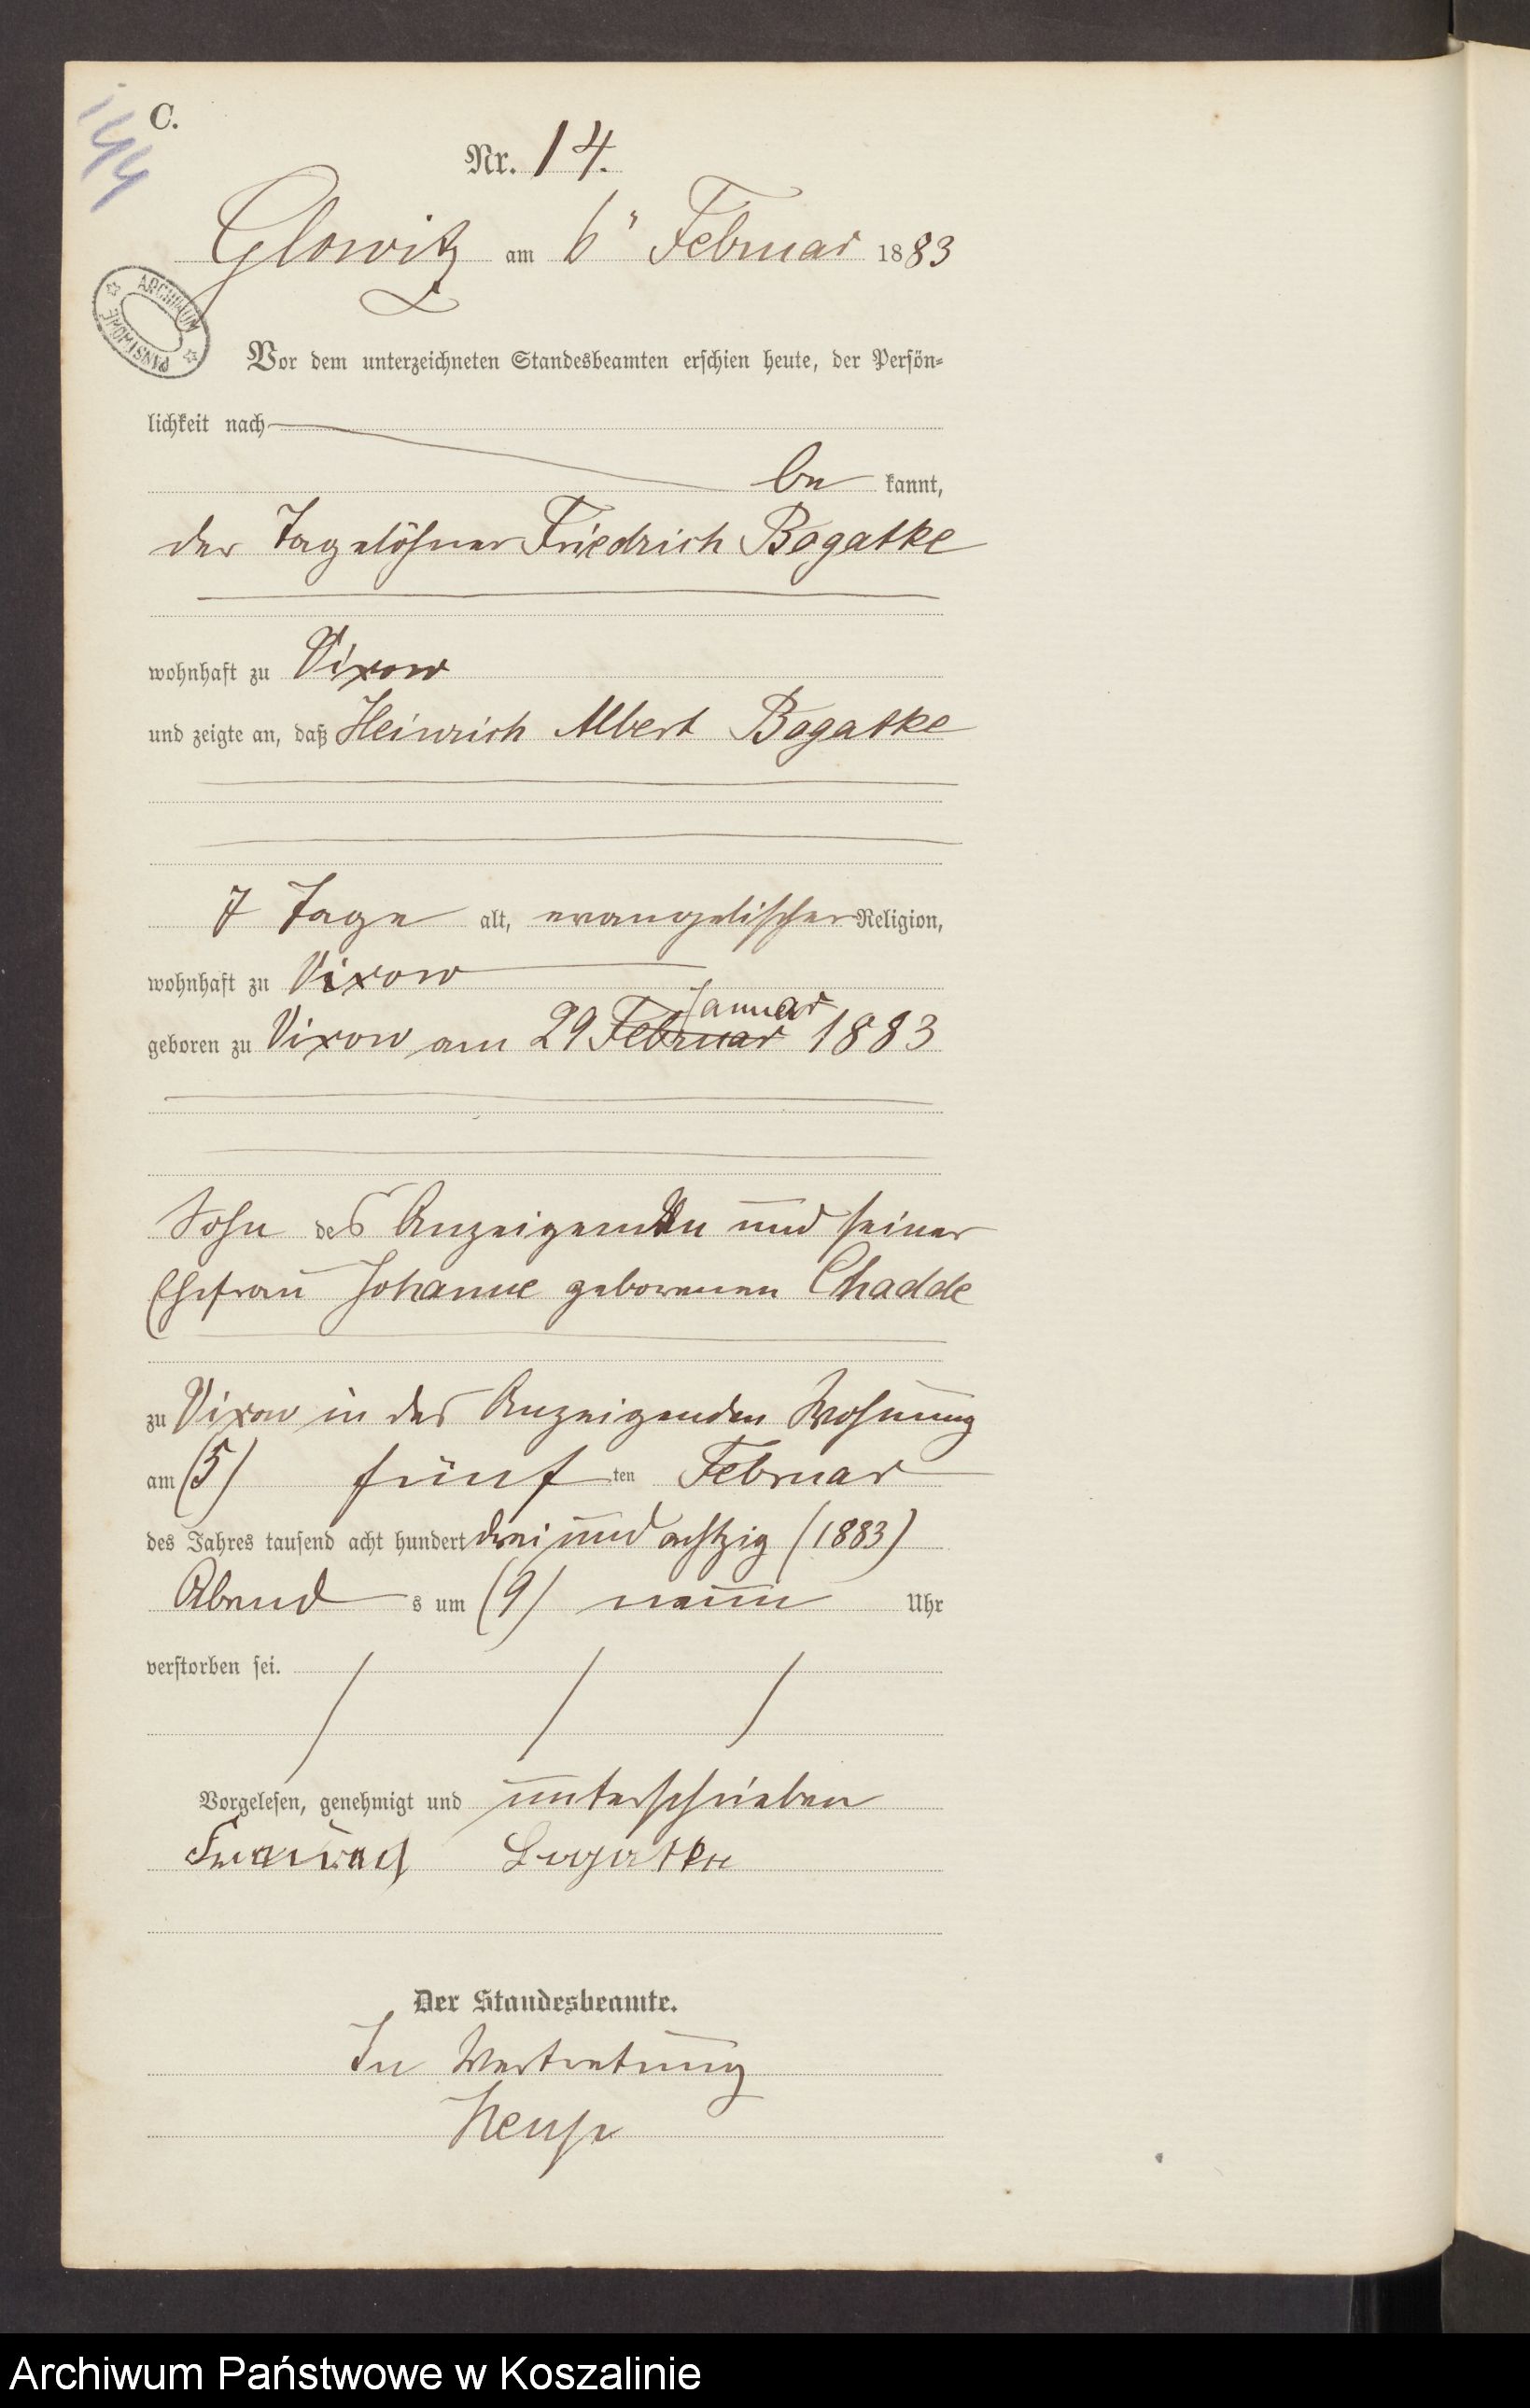 C.
144
Nr. 14.
Glowitz am 6" Februar 1883
ARCHIWUM PAŃSTWOWE
Vor dem unterzeichneten Standesbeamten erschien heute, der Persön-
lichkeit nach
be kannt,
der Tagelöhner Friedrich Bogatke
wohnhaft zu Vixow
und zeigte an, daß Heinrich Albert Bogatke
7 Tage alt, evangelischer Religion,
wohnhaft zu Vixow
Januar
geboren zu Vixow am 29 Februar 1883
Sohn des Anzeigenden und seiner
Ehefrau Johanne geborenen Chadde
zu Vixow in des Anzeigenden Wohnung
am (5) fünf ten Februar
des Jahres tausend acht hundert drei und achtzig (1883)
Abend s um (9) neun Uhr
verstorben sei.
Vorgelesen, genehmigt und unterschrieben
Bogatke
Der Standesbeamte.
In Vertretung
Archiwum Państwowe w Koszalinie